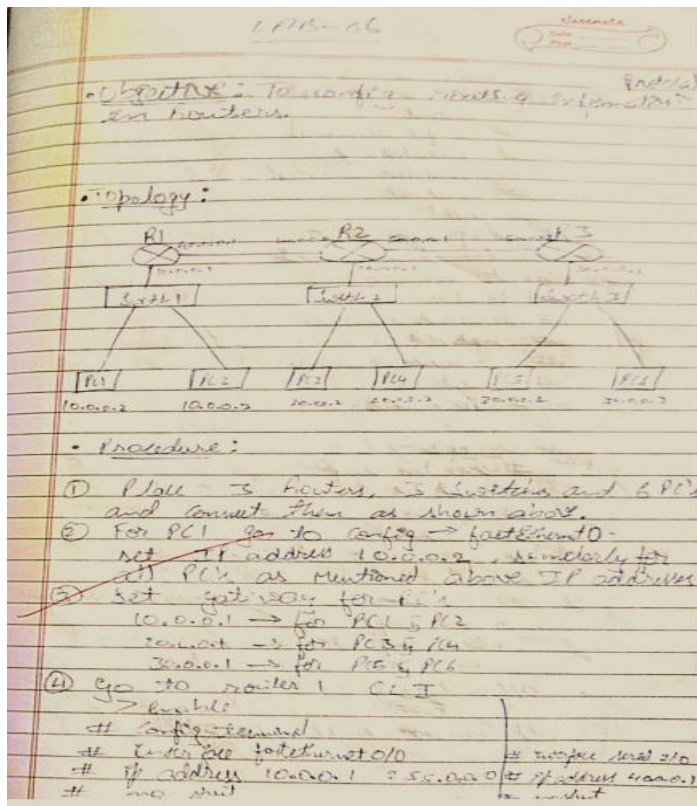 LAB-06
classmate
Date
Page
• Objective: To config routing information
in Routers.
• Topology:
R1 R2 R3
Switch 1 Switch 2 Switch 3
PC1 PC2 PC3 PC4 PC5 PC6
10.0.0.2 10.0.0.3 20.0.0.2 20.0.0.3 30.0.0.2 30.0.0.3
• Procedure:
① Place 3 Routers, 3 Switches and 6 PC's
and connect them as shown above.
② For PC1 go to config → fastEthernet0.
set IP address 10.0.0.2, similarly for
all PC's as mentioned above IP addresses
③ Set gateway for PC's
10.0.0.1 → for PC1 & PC2
20.0.0.1 → for PC3 & PC4
30.0.0.1 → for PC5 & PC6
④ go to router 1 CLI
> Enable
# config terminal
# Interface fastethernet 0/0 # interface serial 2/0
# ip address 10.0.0.1 255.0.0.0 # ip address 40.0.0.1
# no shut # no shut